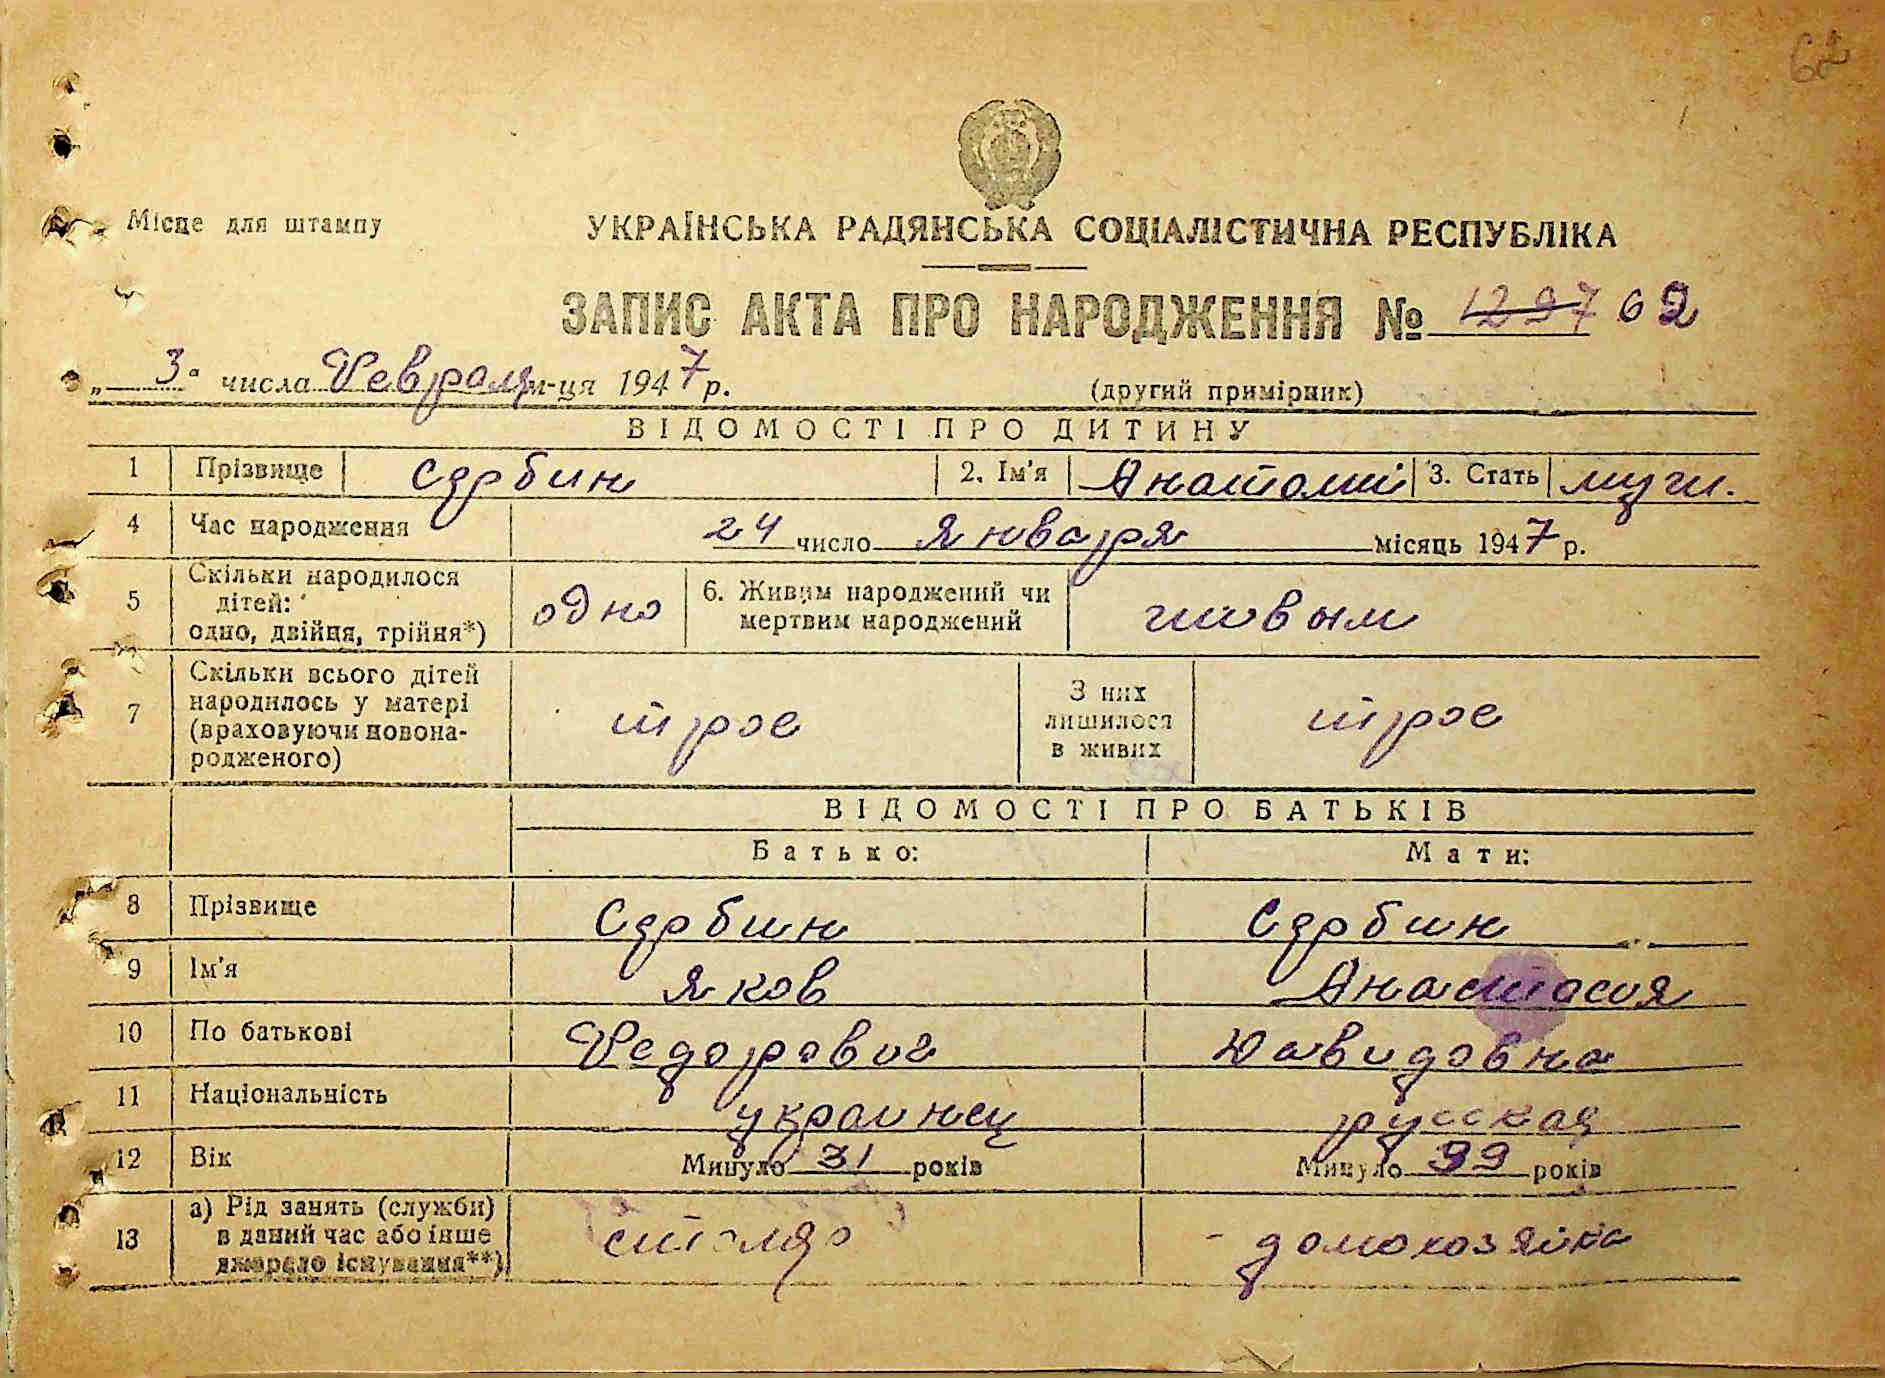 62
Місце для штампу
УКРАЇНСЬКА РАДЯНСЬКА СОЦІАЛІСТИЧНА РЕСПУБЛІКА
ЗАПИС АКТА ПРО НАРОДЖЕННЯ № 1297 62
„3" числа Февраля м-ця 1947 р. (другий примірник)
ВІДОМОСТІ ПРО ДИТИНУ
1 Прізвище Сербин 2. Ім'я Анатолий 3. Стать муж.
4 Час народження 24 число Января місяць 1947 р.
5 Скільки народилося дітей: одно, двійня, трійня*) одно 6. Живим народжений чи мертвим народжений живым
7 Скільки всього дітей народилось у матері (враховуючи новонародженого) трое З них лишилося в живих трое
ВІДОМОСТІ ПРО БАТЬКІВ
Батько: Мати:
8 Прізвище Сербин Сербин
9 Ім'я Яков Анастасия
10 По батькові Федорович Давидовна
11 Національність украинец русская
12 Вік Минуло 31 років Минуло 39 років
13 а) Рід занять (служби) в даний час або інше джерело існування**) столяр - домохозяйка